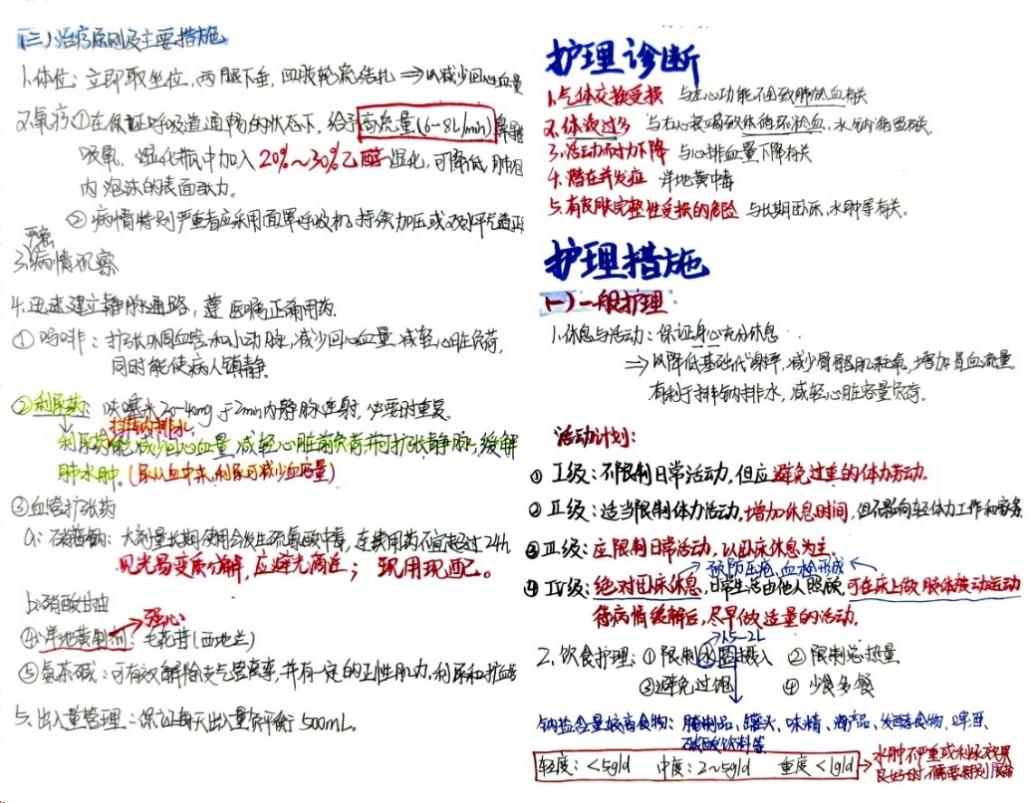 (三)治疗原则及主要措施
1.体位：立即取坐位，两腿下垂，四肢轮流结扎 ⇒以减少回心血量
2.氧疗①在保证呼吸道通畅的状态下，给予高流量(6~8L/min)
吸氧，湿化瓶中加入20%~30%乙醇湿化，可降低肺泡
内泡沫的表面张力。
②病情特别严重者应采用面罩呼吸机持续加压或双水平气道正
严密
3.病情观察
4.迅速建立静脉通路，遵医嘱正确用药
①吗啡：扩张外周血管和小动脉，减少回心血量，减轻心脏负荷，
同时能使病人镇静.
②利尿药：呋噻米20-40mg于2min内静脉注射，必要时重复。
排钠排水
利尿药能减少回心血量，减轻心脏前负荷，并可扩张静脉，缓解
肺水肿。(尿从血中来，利尿可减少血容量)
③血管扩张药
a：硝普钠：大剂量长期使用会发生硫氰酸中毒，连续用药不宜超过24h
见光易变质分解，应避光滴注；现用现配。
b.硝酸甘油
④洋地黄制剂：毛花苷(西地兰) →强心
⑤氨茶碱：可有效解除支气管痉挛，并有一定的正性肌力，利尿和扩血
5.出入量管理：保证每天出入量负平衡500mL.
护理诊断
1.气体交换受损 与左心功能不全致肺淤血有关
2.体液过多 与右心衰竭致体循环淤血，水钠潴留有关.
3.活动耐力下降 与心排血量下降有关
4.潜在并发症 洋地黄中毒
5.有皮肤完整性受损的危险 与长期卧床，水肿等有关。
护理措施
(一)一般护理
1.休息与活动：保证身心充分休息
⇒以降低基础代谢率，减少骨骼肌耗氧，增加肾血流量
有利于排钠排水，减轻心脏容量负荷。
活动计划：
① Ⅰ级：不限制日常活动，但应避免过重的体力劳动.
② Ⅱ级：适当限制体力活动，增加休息时间，但不影响轻体力工作和家务
③ Ⅲ级：应限制日常活动，以卧床休息为主.
预防压疮，血栓形成
④ Ⅳ级：绝对卧床休息，日常生活由他人照顾，可在床上做肢体被动运动
待病情缓解后，尽早做适量的活动.
1.5-2L
2.饮食护理：①限制水盐摄入 ②限制总热量
③避免过饱 ④少食多餐
钠盐含量较高食物：腌制品、罐头、味精、海产品、发酵食物、啤酒、
碳酸饮料等
轻度：<5g/d 中度：2~5g/d 重度<1g/d → 水肿不严重或利尿效果
良好时，不需要特别限制